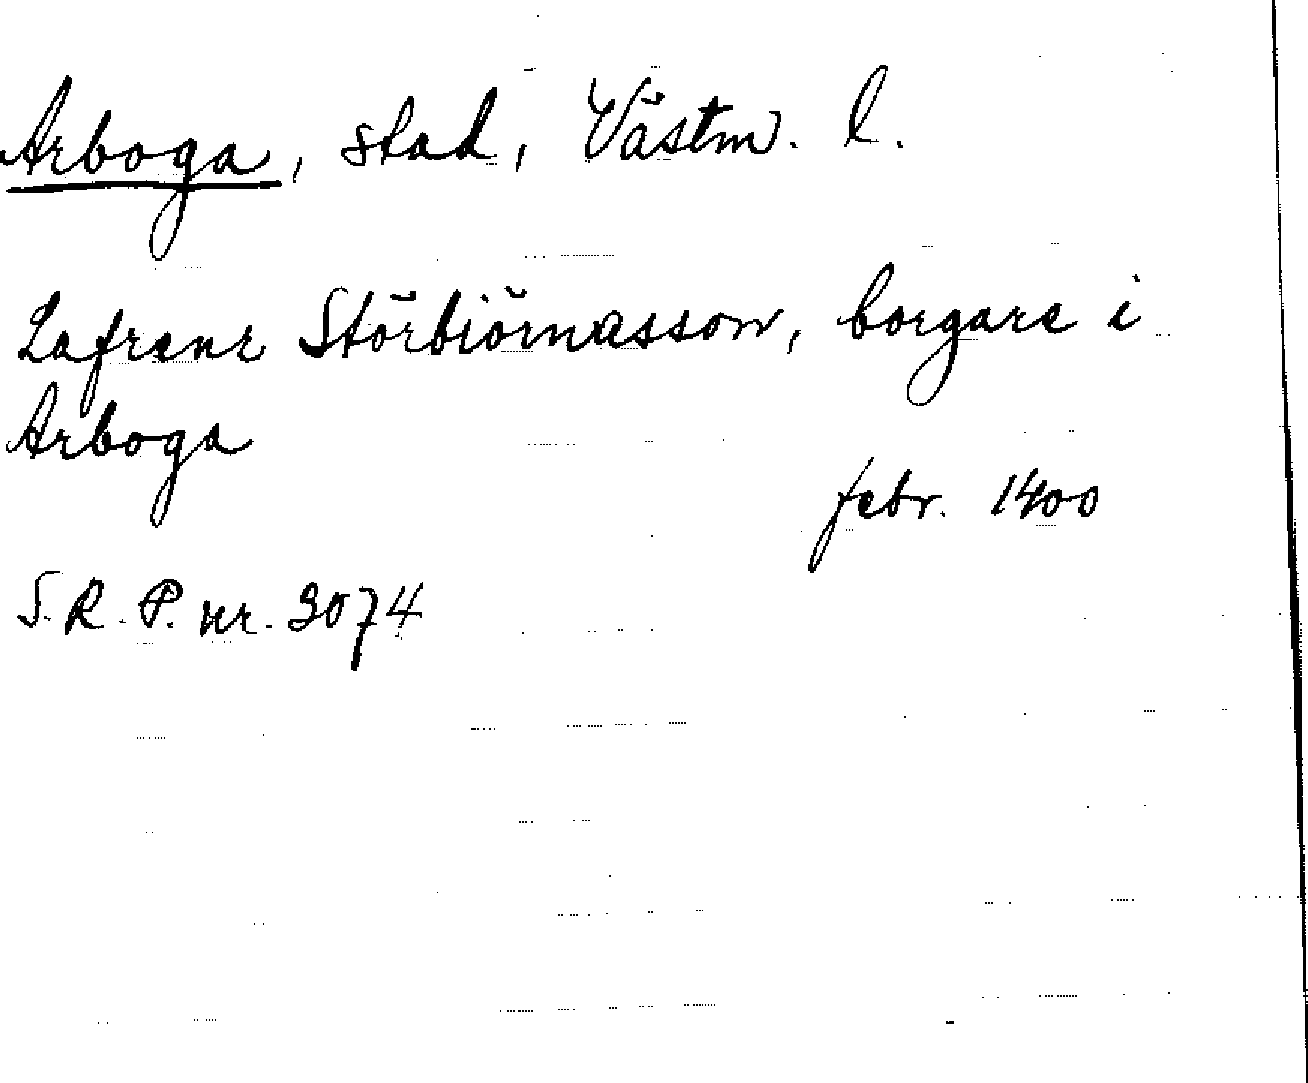 Arboga, stad, Västm. l.
Lafrenz Störbiörnasson, borgare i
Arboga
febr. 1400
S.R.P. nr. 3074